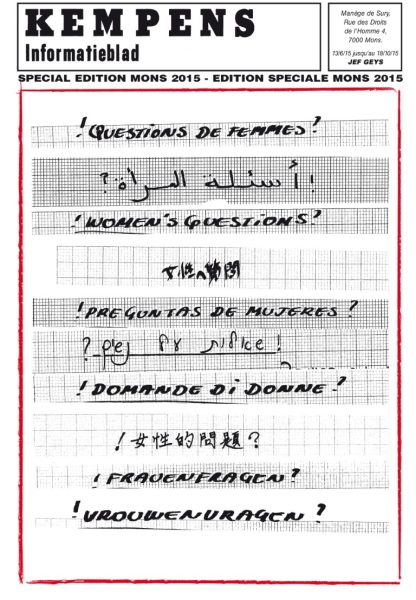 KEMPENS
Informatieblad
Manège de Sury,
Rue des Droits
de l'Homme 4,
7000 Mons.
13/6/15 jusqu'au 18/10/15
JEF GEYS
SPECIAL EDITION MONS 2015 - EDITION SPECIALE MONS 2015
! QUESTIONS DE FEMMES ?
! أسئلة المرأة ?
! WOMEN'S QUESTIONS ?
女性へ質問
! PREGUNTAS DE MUJERES ?
! שאלות של נשים ?
! DOMANDE DI DONNE ?
! 女性的問題 ?
! FRAUENFRAGEN ?
! VROUWENVRAGEN ?